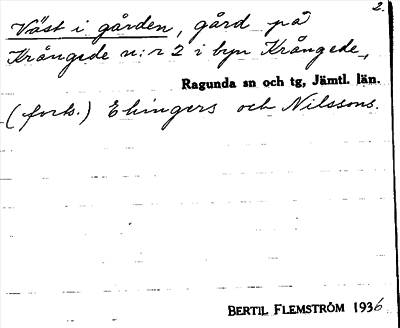 2.
Väst i gården, gård på
Krångede n:r 2 i byn Krångede,
Ragunda sn och tg, Jämtl. län.
(forts.) Ehingers och Nilssons.
BERTIL FLEMSTRÖM 1936